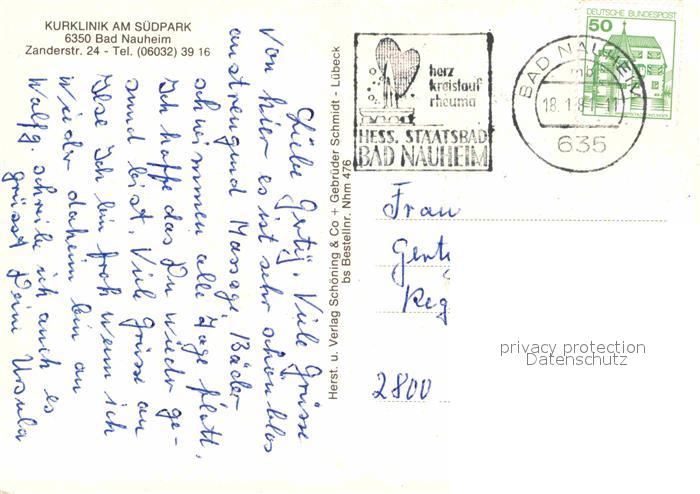 KURKLINIK AM SÜDPARK
6350 Bad Nauheim
Zanderstr. 24 - Tel. (06032) 39 16
Liebe Gerti, Viele Grüsse
von hier es ist sehr schön blos
anstrengend Massage, Bäder
schwimmen alle Tage platt.
Ich hoffe das Du wieder ge-
sund bist. Viele Grüsse an
Ilse Ich bin froh wenn ich
wieder daheim bin an
Walfg. schreibe ich auch es
grüsst Deine Ursula
Herst. u. Verlag Schöning & Co + Gebrüder Schmidt - Lübeck
bs Bestellnr. Nhm 476
herz
kreislauf
rheuma
HESS. STAATSBAD
BAD NAUHEIM
BAD NAUHEIM
mb
18.-1.8 -11
635
DEUTSCHE BUNDESPOST
50
Frau
Gerti
Reg
2800
privacy protection
Datenschutz